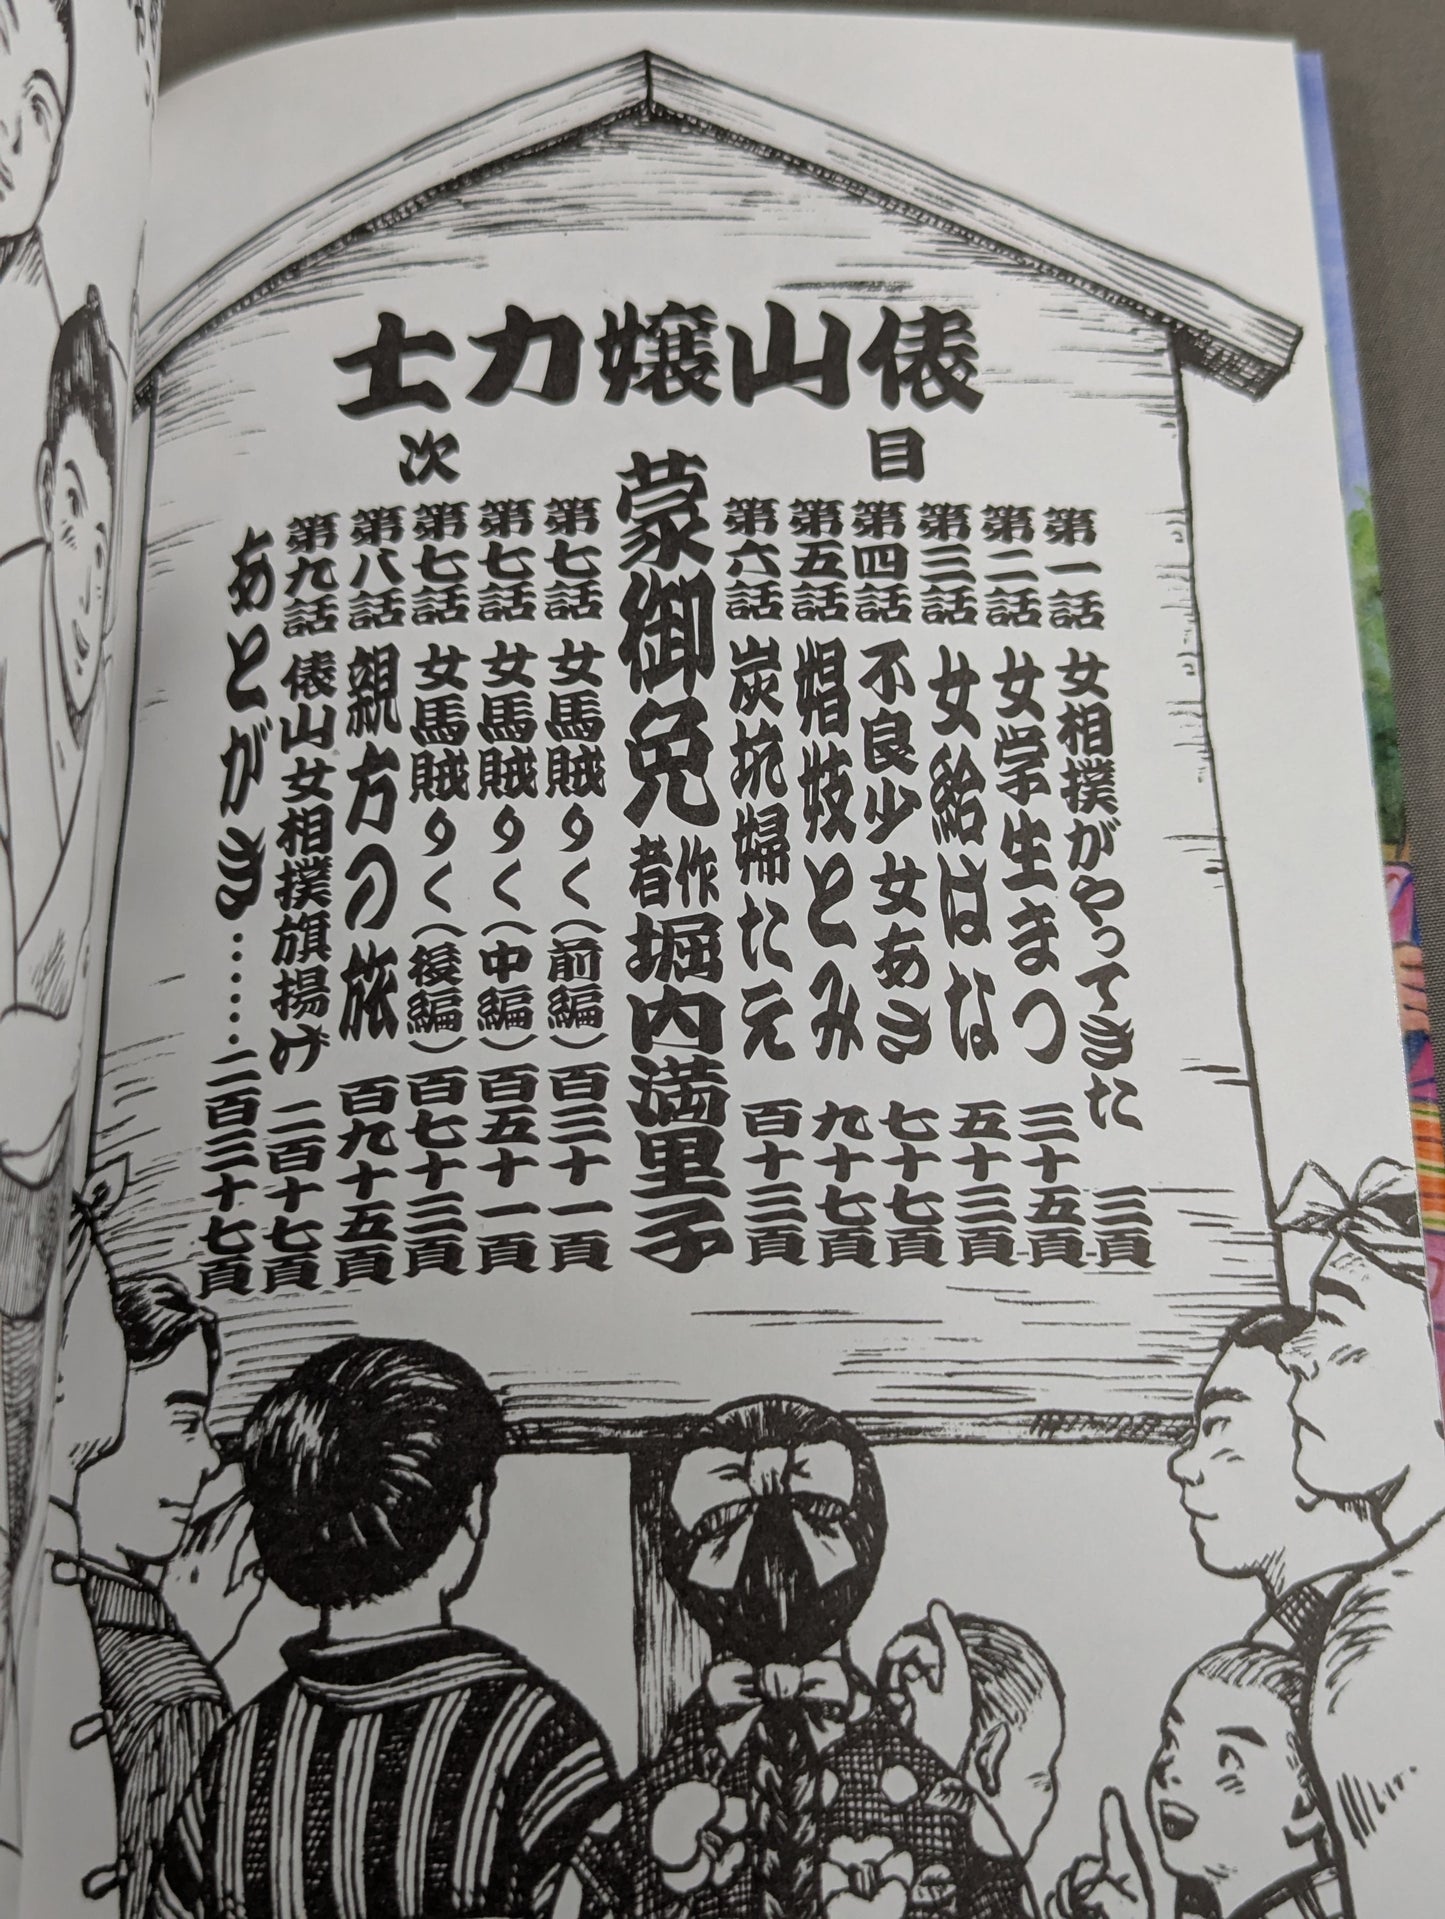 俵山嬢力士
目次
第一話 女相撲がやってきた 三頁
第二話 女学生まつ 三十五頁
第三話 女給はな 五十三頁
第四話 不良少女あき 七十七頁
第五話 娼妓とみ 九十七頁
第六話 炭坑婦たえ 百十三頁
蒙御免 作者 堀内満里子
第七話 女馬賊りく(前編) 百三十一頁
第七話 女馬賊りく(中編) 百五十一頁
第七話 女馬賊りく(後編) 百七十三頁
第八話 親方の旅 百九十五頁
第九話 俵山女相撲旗揚げ 二百十七頁
あとがき……二百三十七頁